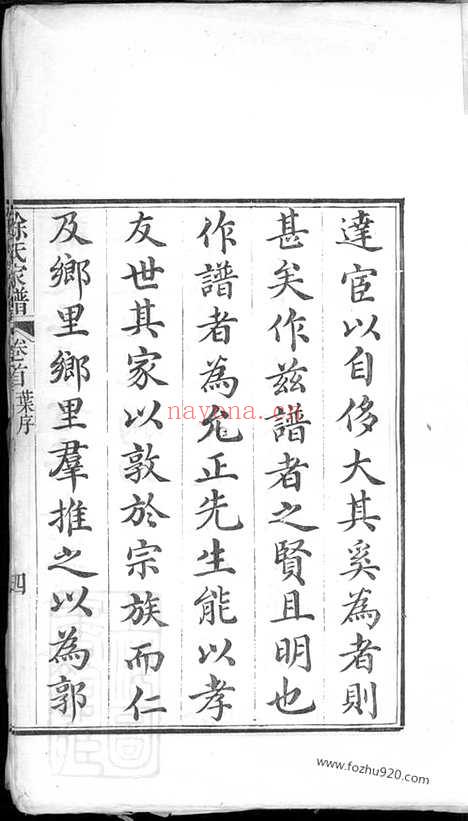 達宦以自侈大其奚為者則
甚矣作兹譜者之賢且明也
作譜者為允正先生能以孝
友世其家以敦於宗族而仁
及鄉里鄉里羣推之以為郭
徐氏家譜
卷首
葉序
四
nayona.cn
www.fozhu920.com